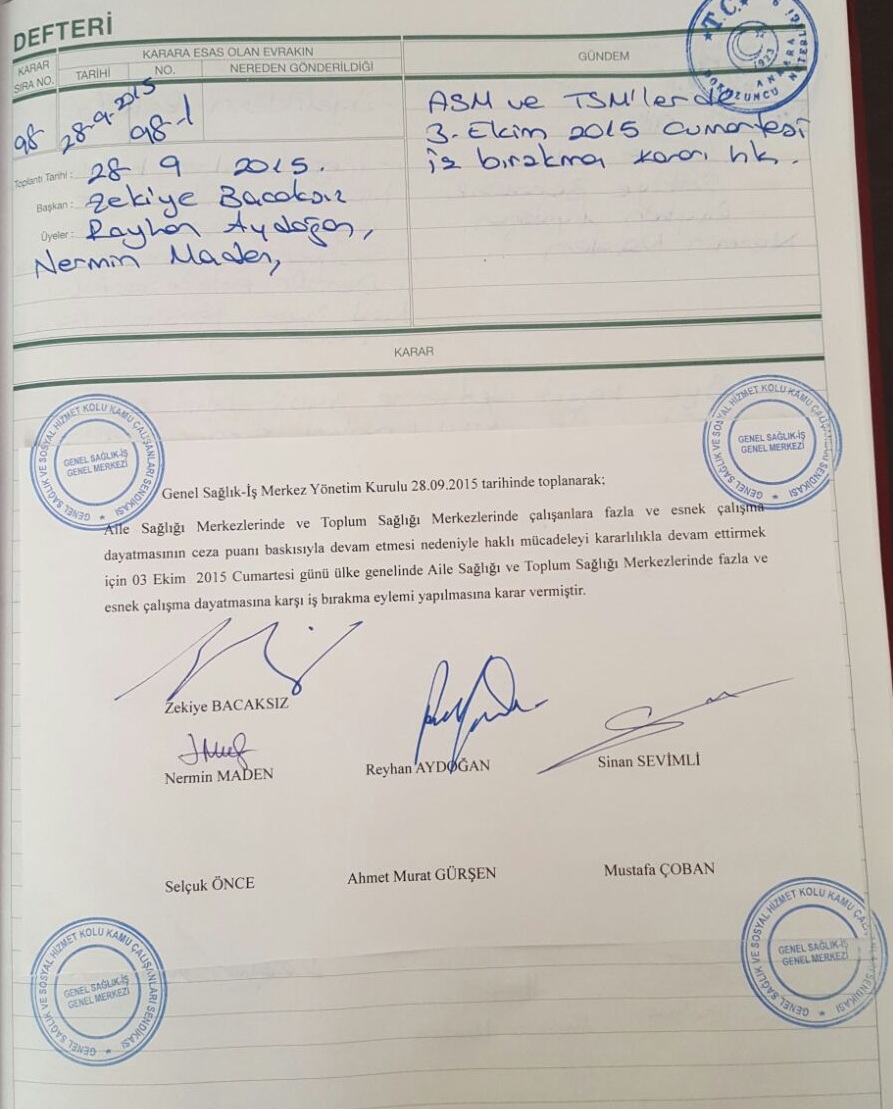 DEFTERİ
KARAR SIRA NO.
KARARA ESAS OLAN EVRAKIN
TARİHİ NO. NEREDEN GÖNDERİLDİĞİ
GÜNDEM
T.C.
ANKARA
1923
98 28-9-2015 98-1
ASM ve TSM'lerde
3. Ekim 2015 Cumartesi
iş bırakma kararı hk.
Toplantı Tarihi : 28 9 2015.
Başkan : Zekiye Bacaksız
Üyeler : Reyhan Aydoğan,
Nermin Maden,
KARAR
GENEL SAĞLIK VE SOSYAL HİZMET KOLU KAMU ÇALIŞANLARI SENDİKASI
GENEL SAĞLIK-İŞ
GENEL MERKEZİ
GENEL SAĞLIK VE SOSYAL HİZMET KOLU KAMU ÇALIŞANLARI SENDİKASI
GENEL SAĞLIK-İŞ
GENEL MERKEZİ
Genel Sağlık-İş Merkez Yönetim Kurulu 28.09.2015 tarihinde toplanarak;
Aile Sağlığı Merkezlerinde ve Toplum Sağlığı Merkezlerinde çalışanlara fazla ve esnek çalışma
dayatmasının ceza puanı baskısıyla devam etmesi nedeniyle haklı mücadeleyi kararlılıkla devam ettirmek
için 03 Ekim 2015 Cumartesi günü ülke genelinde Aile Sağlığı ve Toplum Sağlığı Merkezlerinde fazla ve
esnek çalışma dayatmasına karşı iş bırakma eylemi yapılmasına karar vermiştir.
Zekiye BACAKSIZ
Nermin MADEN Reyhan AYDOĞAN Sinan SEVİMLİ
Selçuk ÖNCE Ahmet Murat GÜRŞEN Mustafa ÇOBAN
GENEL SAĞLIK VE SOSYAL HİZMET KOLU KAMU ÇALIŞANLARI SENDİKASI
GENEL SAĞLIK-İŞ
GENEL MERKEZİ
GENEL SAĞLIK VE SOSYAL HİZMET KOLU KAMU ÇALIŞANLARI SENDİKASI
GENEL SAĞLIK-İŞ
GENEL MERKEZİ